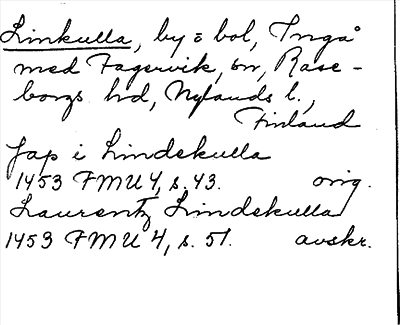 Linkulla, by o bol, Ingå
med Fagervik, sn, Rase-
borgs hd, Nylands l.,
Finland
Jap i Lindekulla
1453 FMU 4, s. 43. orig.
Laurentz Lindekulla
1453 FMU 4, s. 51. avskr.